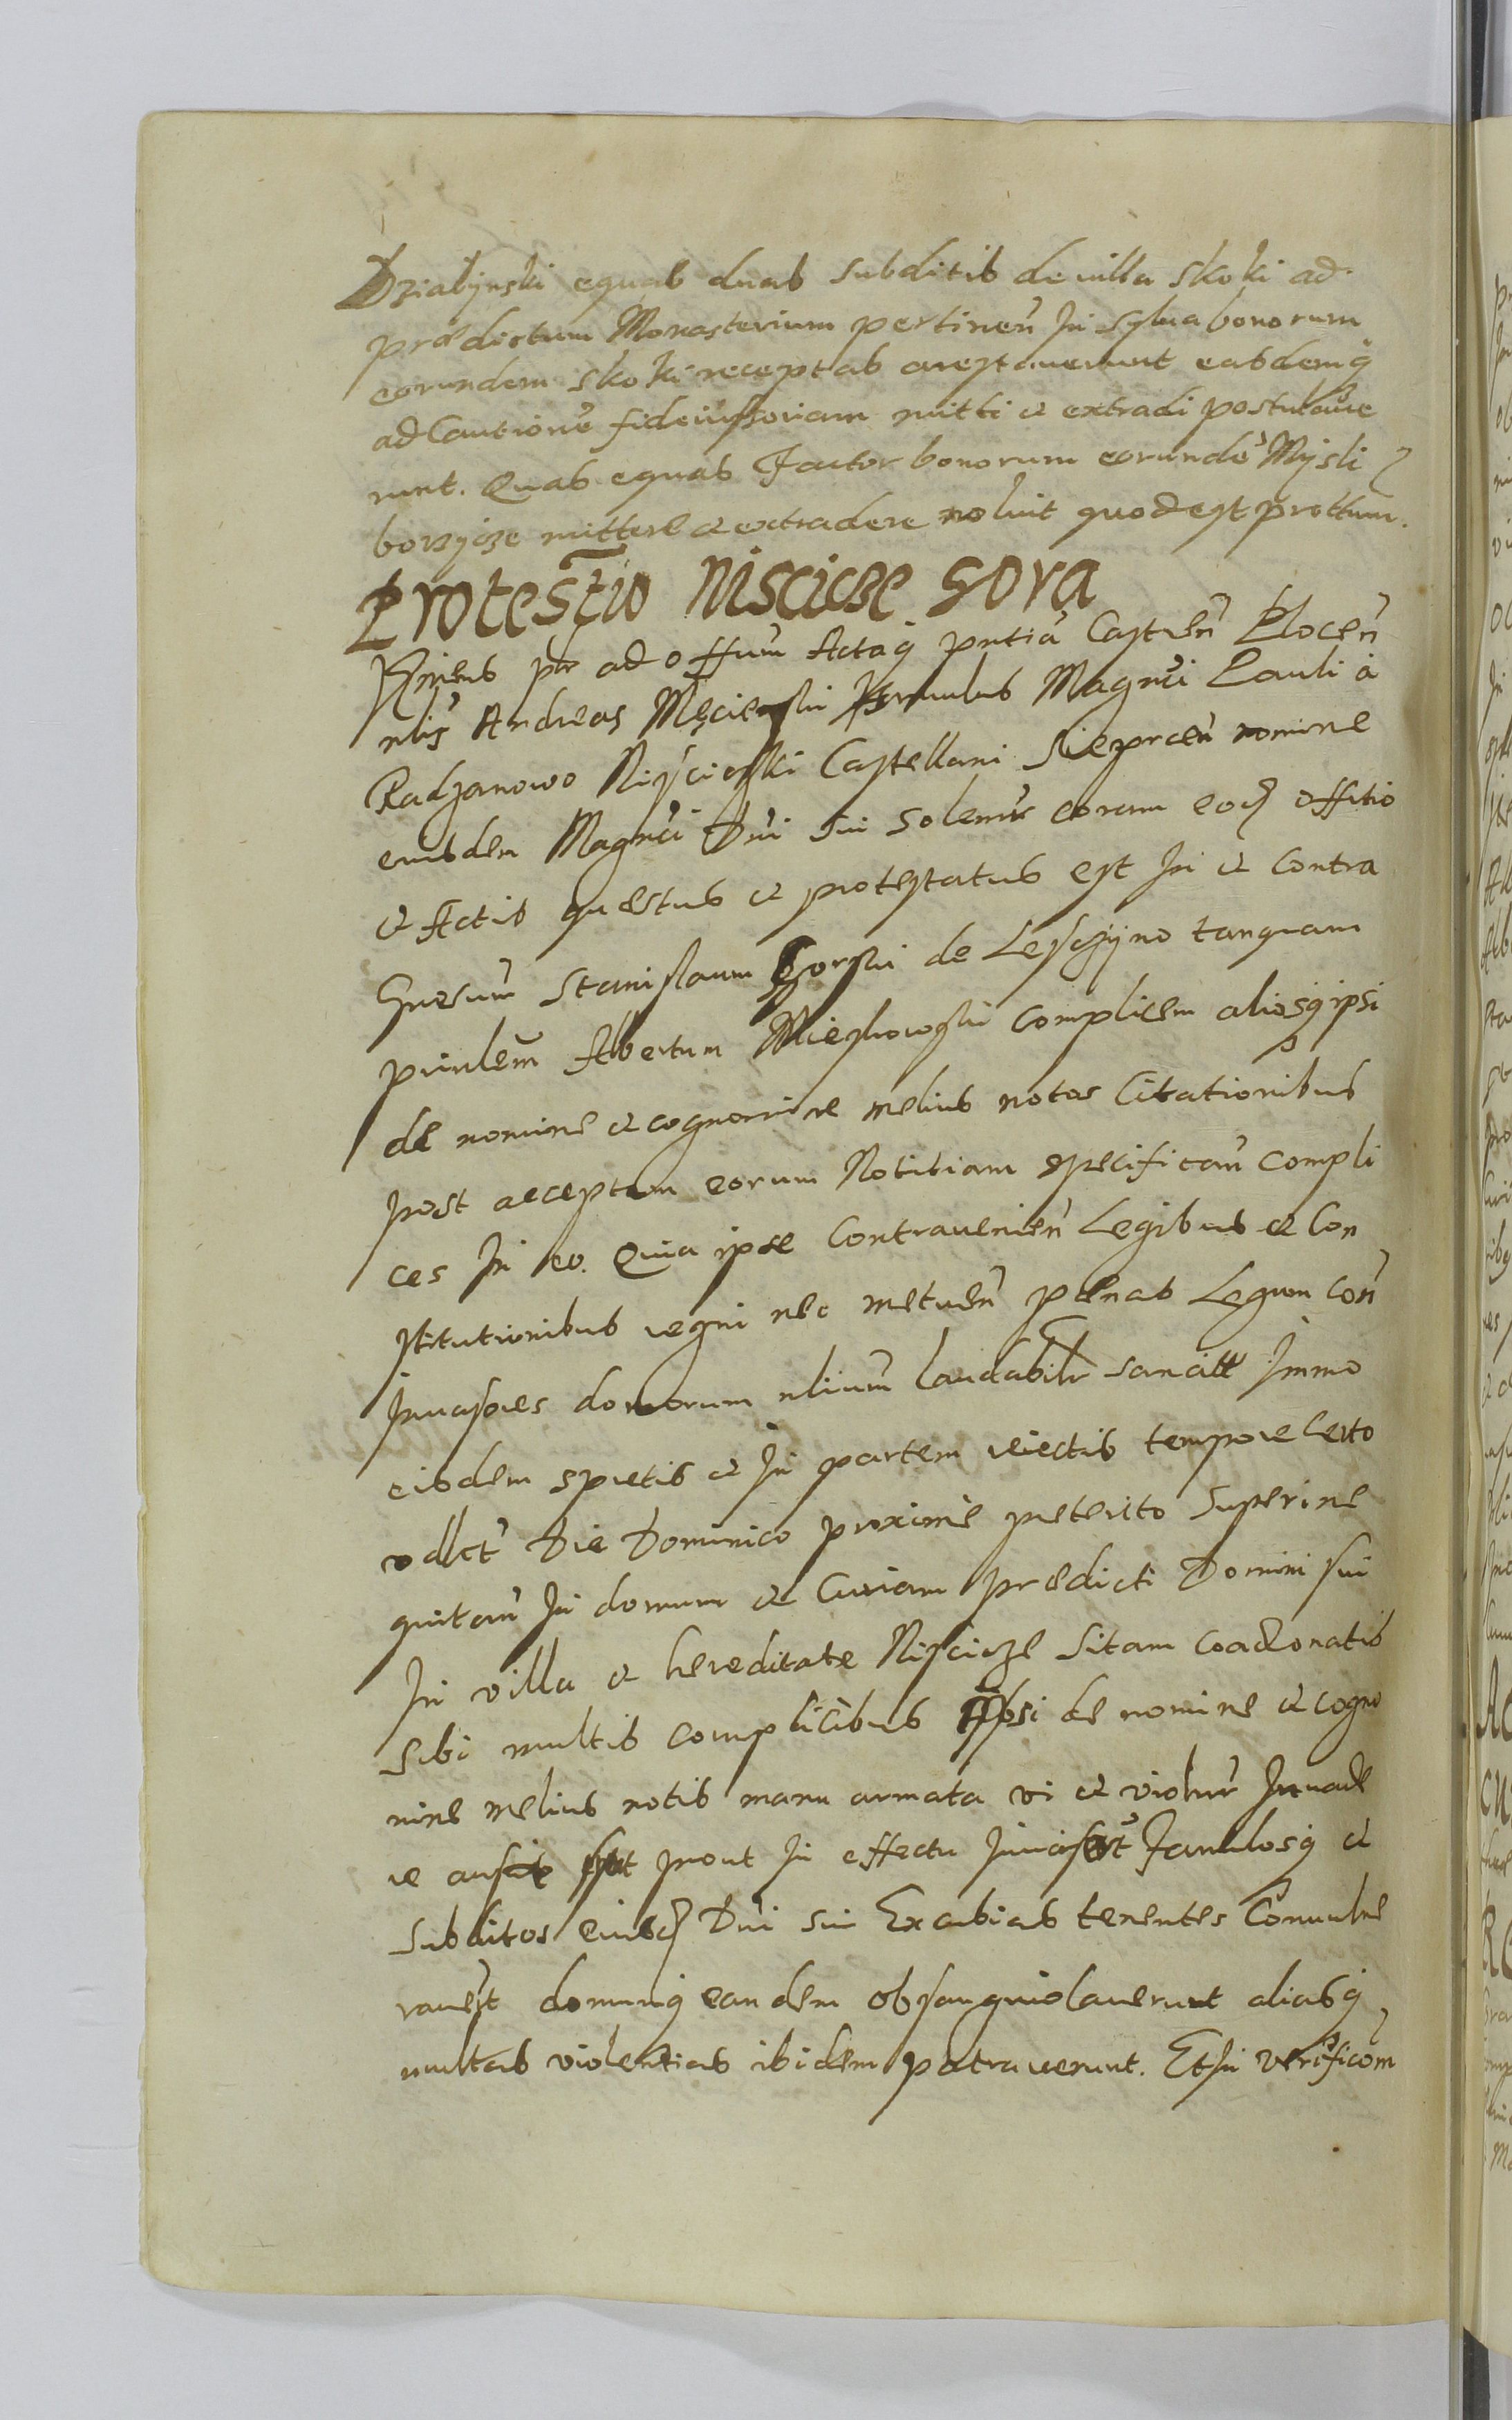 Dziabynski equab duab subditib de villa Skoki ad
prædictum Monasterium pertineñ In sylua bonorum
eorundem Skoki receptab arestauerunt easdemq
ad Cautionē fideiussoriam mitti et extradi postulaue
runt. Quab equab Factor bonorum eorundē Mysli
borzicze mittere et extradere noluit quod est prottum.
Protestio Niscicze Gora
Veniens ad offum Actaq pntia Castreñ Ploceñ
nlis Andreas famulus Magnci Pauli à
Radzanowo Nisciczki Castellani Sieprceñ nomine
eiusdem Magnci Dni sui solenr coram eod officio
et Actis questus et protestatus est In et contra
Gnesum Stanislaum Gorski de tanquam
prinlem Albertum complicem aliosq ipsi
de nomine et cognomine melius notos Citationibus
post acceptam eorum Notitiam specificañ compli
ces In eo. Quia ipse Contraenieñ Legibus et Con
stitutionibus regni nec metueñ penas Legum Coñ
Inuasores domorum nlium laudabilr sancitt Immo
eisdem spretis et In partem reiectis tempore certo
vdlct Die Dominico proxime preterito superine
quitañ In domum et Curiam predicti Domini sui
In villa et hereditate Niscicze sitam coadonatis
sibi multis complicibus ipsi de nomine et cogno
mine melius notis manu armata vi et violntr Inuade
re prout In effectu Famulosq et
subditos eiusd Dni sui Excubias tenentes Conuulne
rauert domumq eandem obsanguiolauerunt aliasq
multas violentias ibidem patrauerunt. Et In verificom